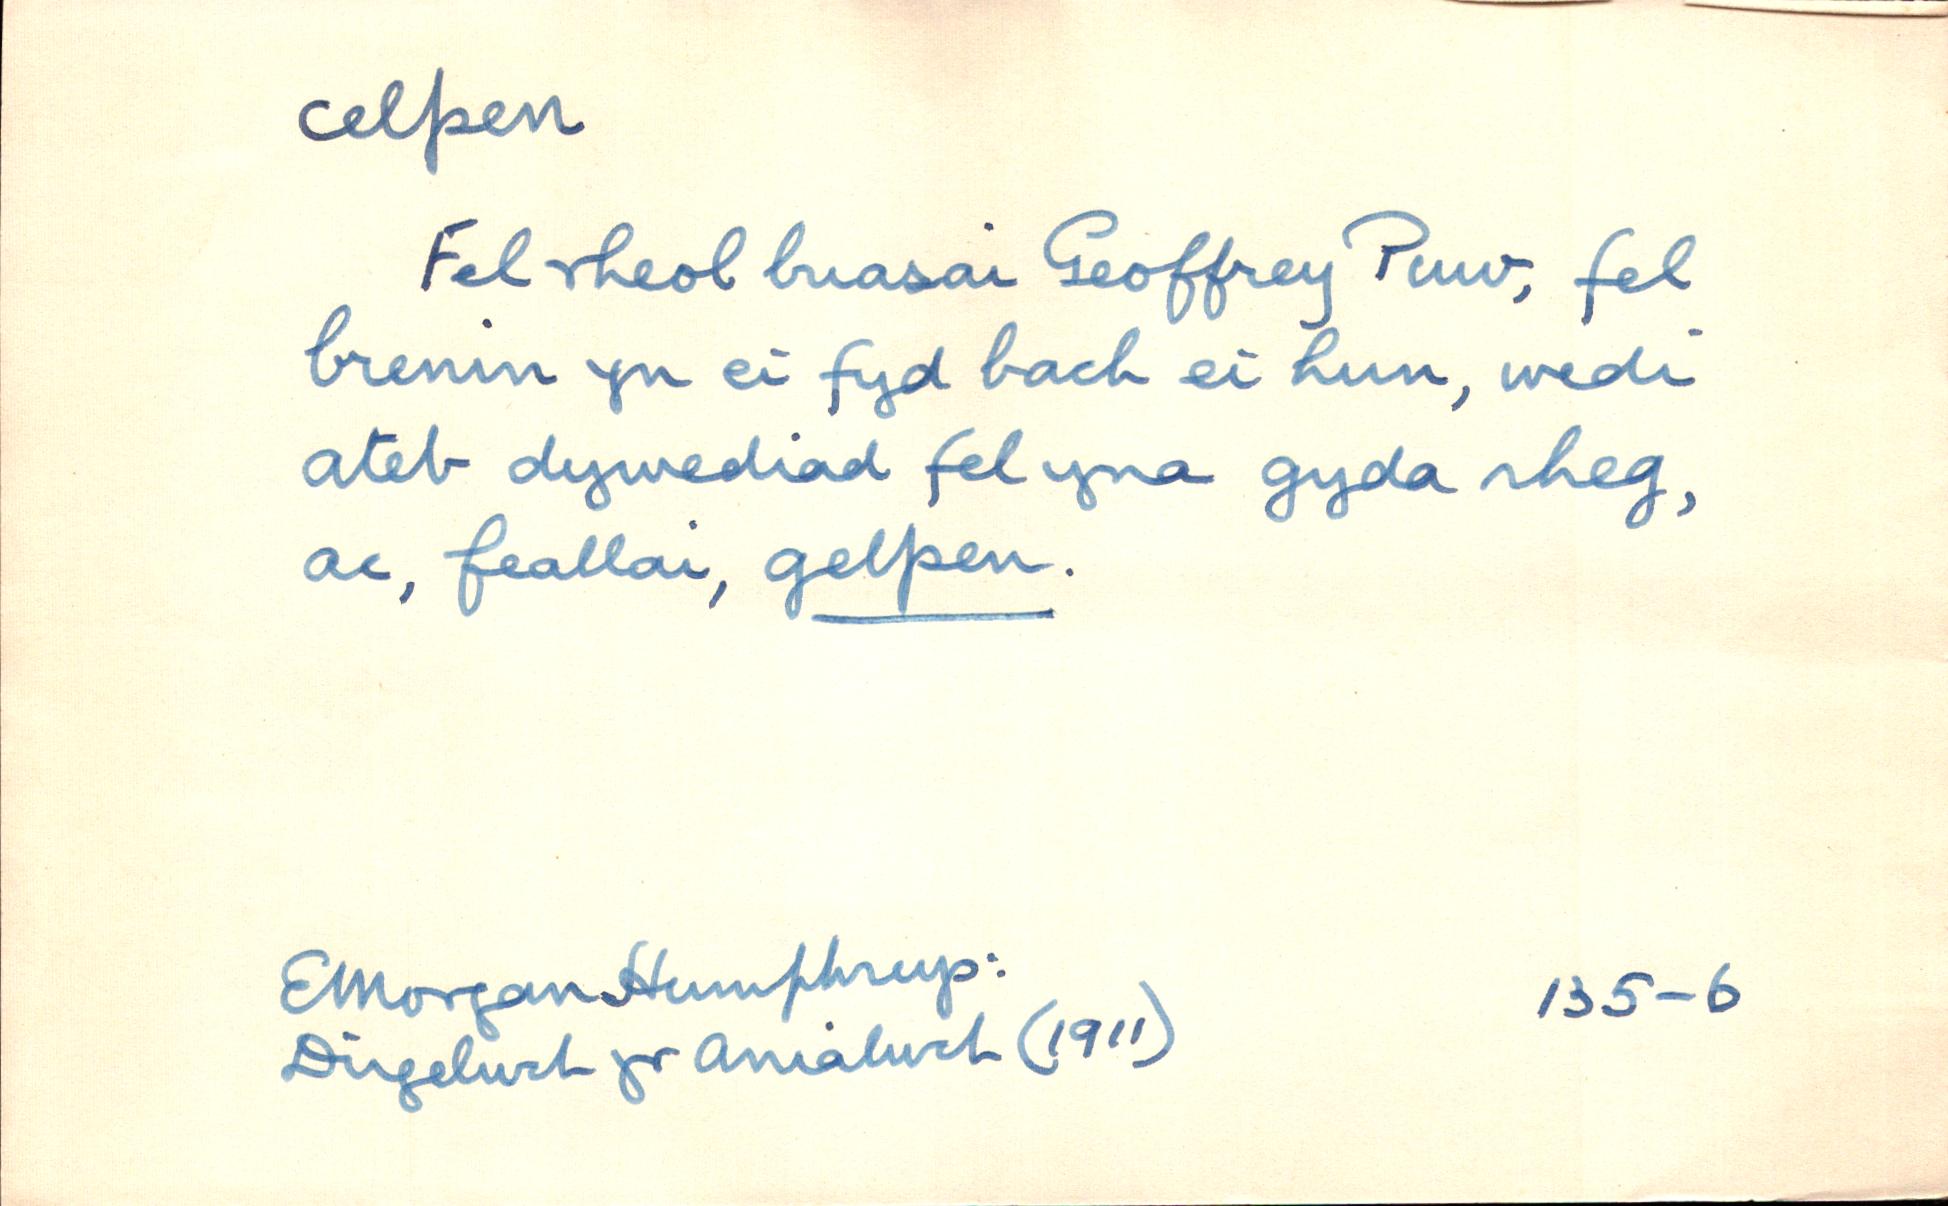 celpen
Fel rheol buasai Geoffrey Puw, fel
brenin yn ei fyd bach ei hun, wedi
ateb dywediad fel yna gyda rheg,
ac, feallai, gelpen.
E Morgan Humphreys:
Dirgelwch yr Anialwch (1911)
135-6